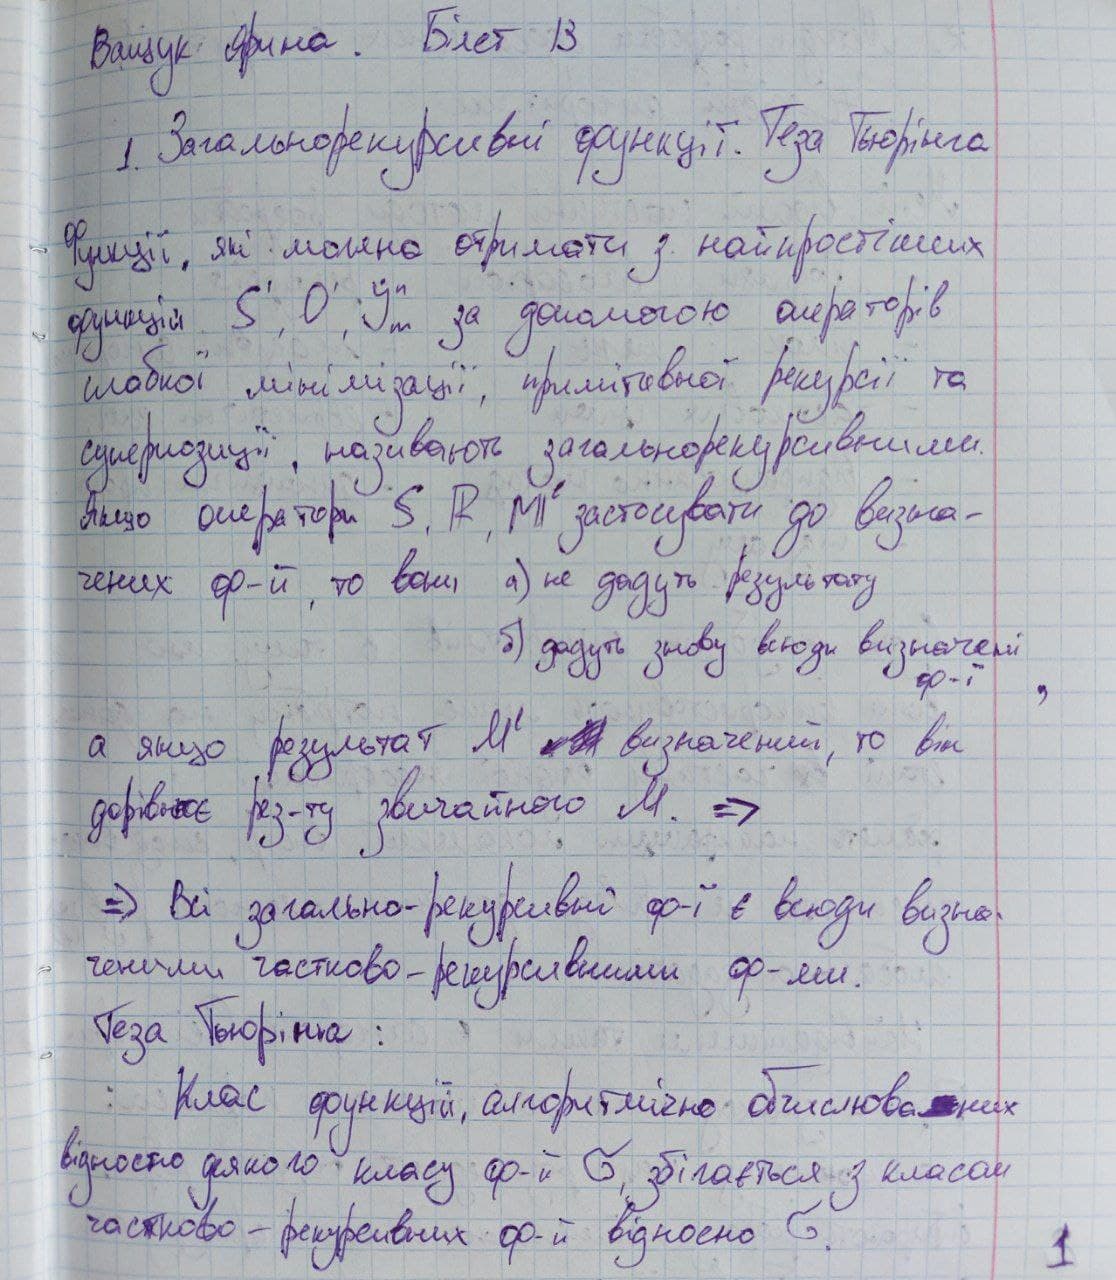 Ващук Ярина. Білет 13
1. Загальнорекурсивні функції. Теза Тьюрінга
Функції, які можна отримати з найпростіших
функцій S¹, O¹, Jⁿₘ за допомогою операторів
слабкої мінімізації, примітивної рекурсії та
суперпозиції, називають загальнорекурсивними.
Якщо оператори S, R, Mˡ застосувати до визна-
чених ф-й, то вони а) не дадуть результату
б) дадуть знову всюди визначені
ф-ї,
а якщо результат Mˡ визначений, то він
дорівнює рез-ту звичайного M. =>
=> Всі загально-рекурсивні ф-ї є всюди визна-
ченими частково-рекурсивними ф-ями.
Теза Тьюрінга:
: Клас функцій, алгоритмічно обчислюваних
відносно деякого класу ф-й G, збігається з класом
частково-рекурсивних ф-й відносно G.
1